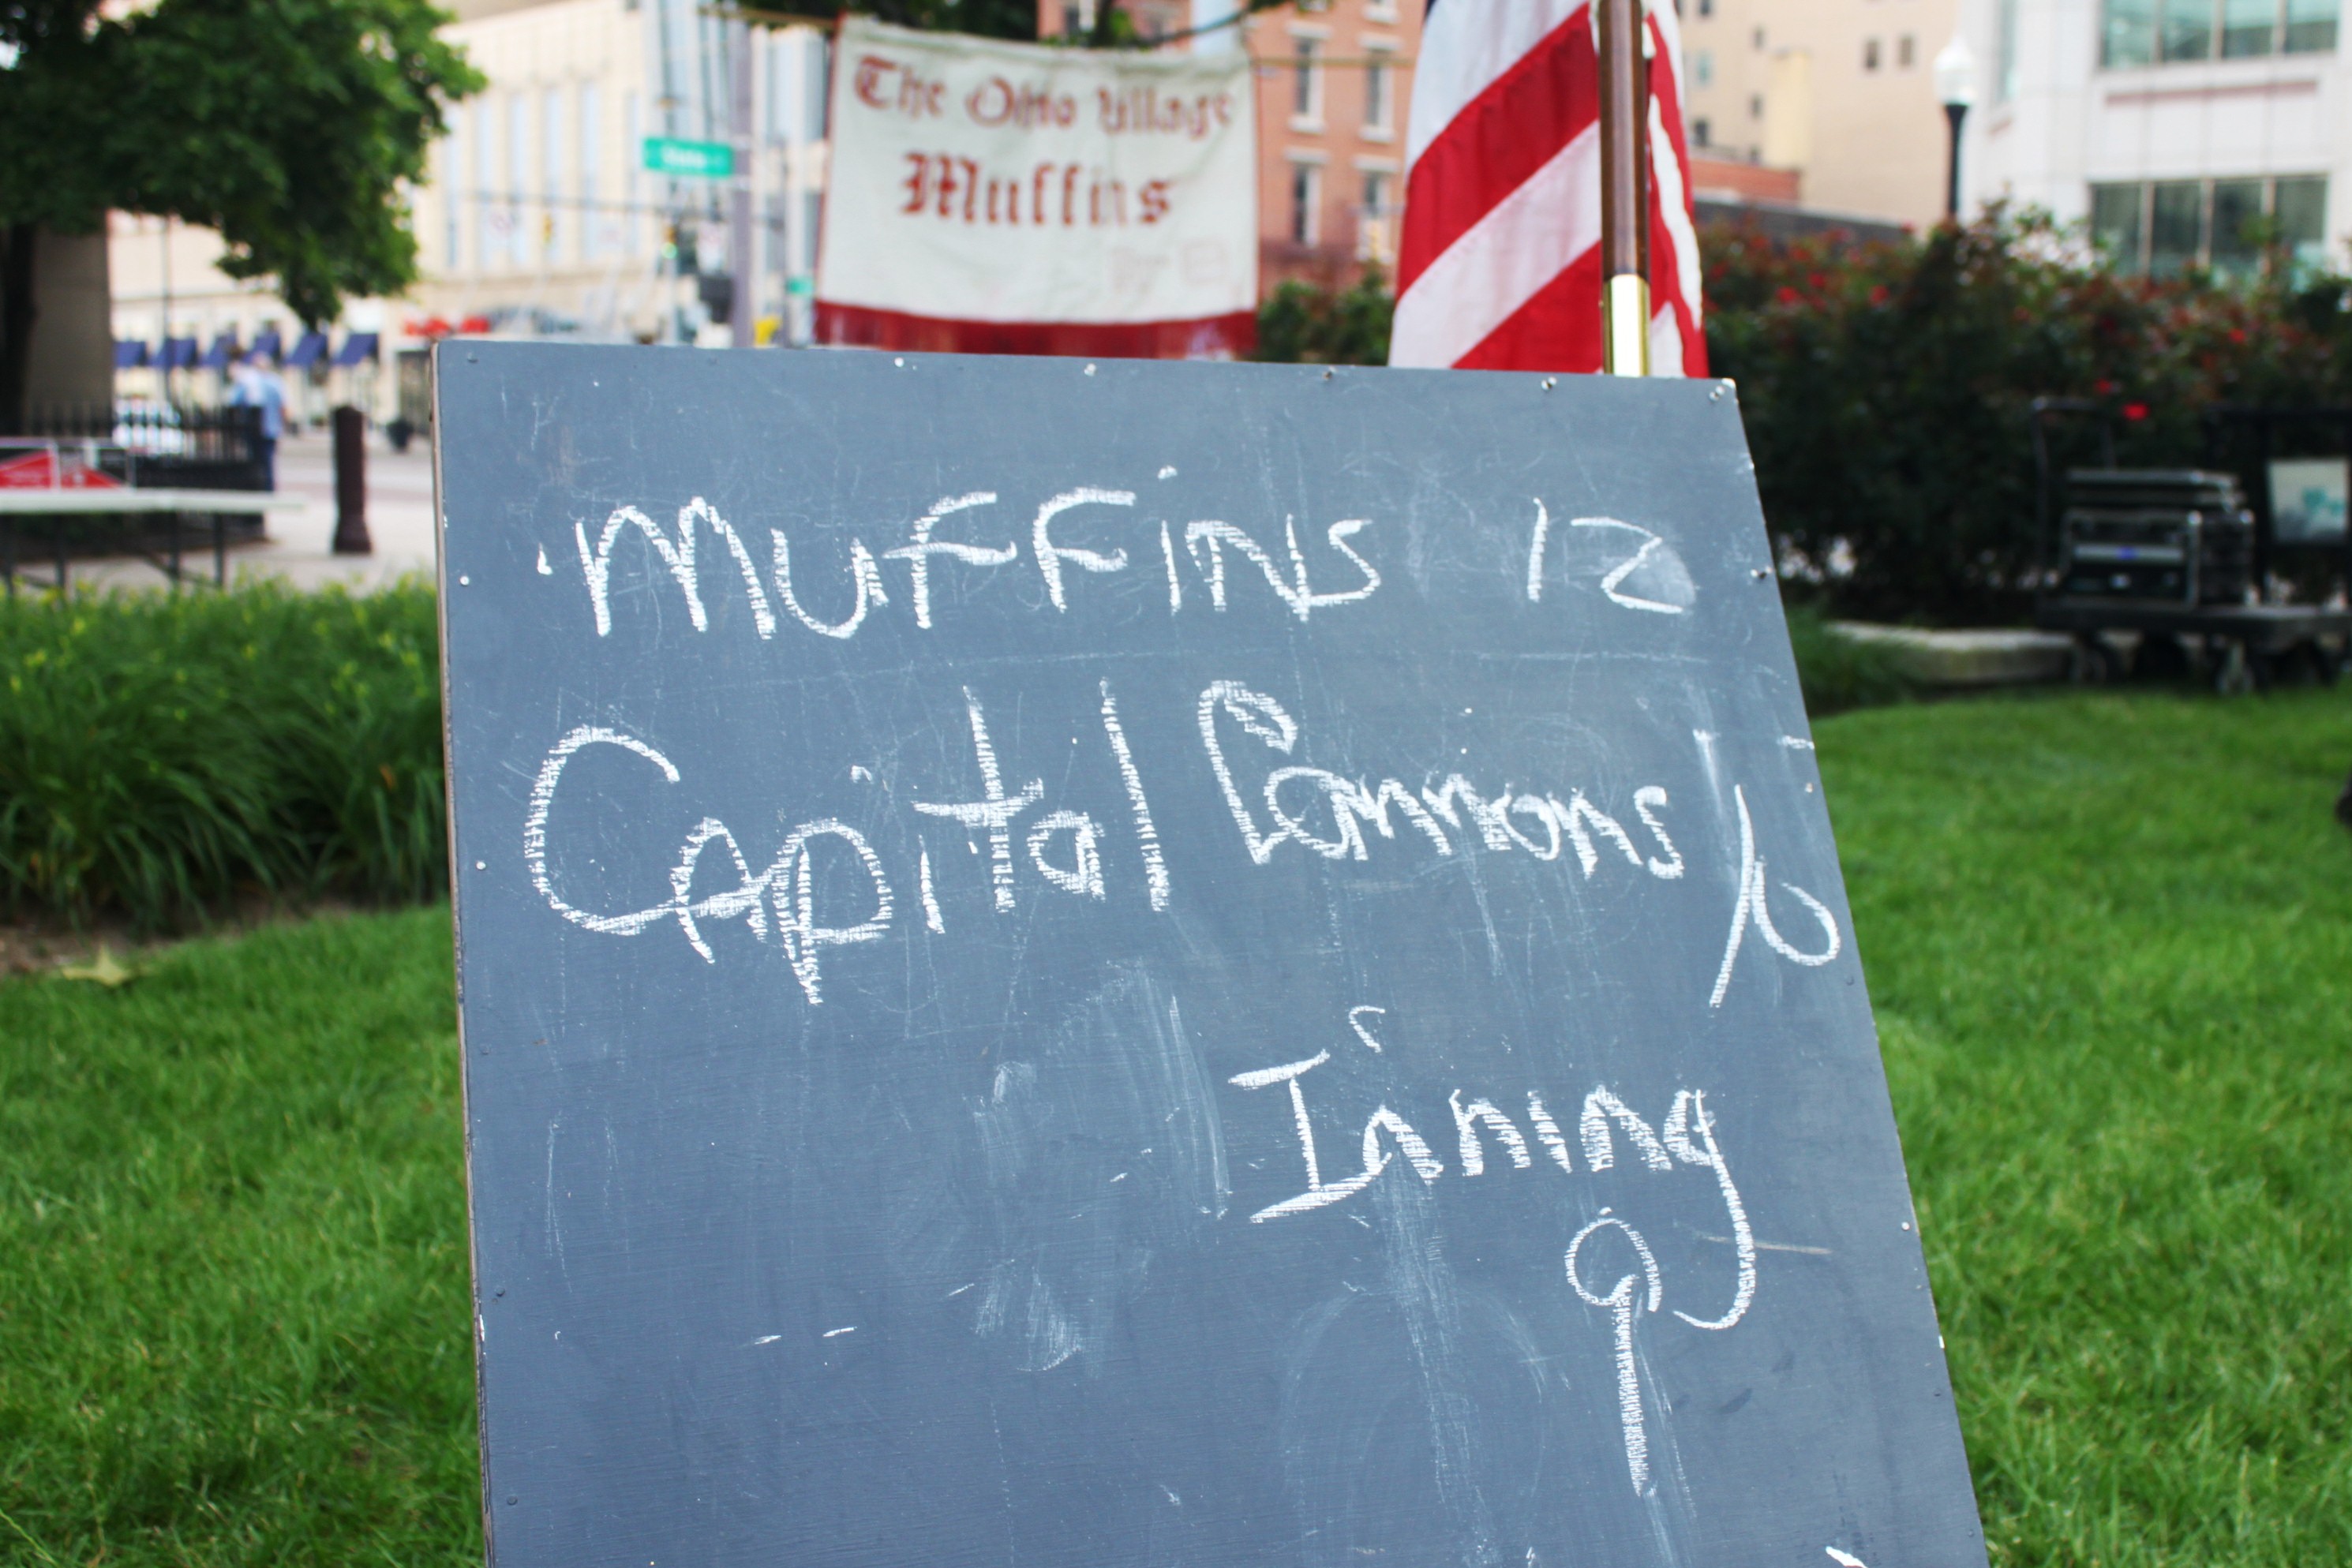 The Ohio Village
Muffins
State
Muffins 12
Capital Connons 10
Inning
9